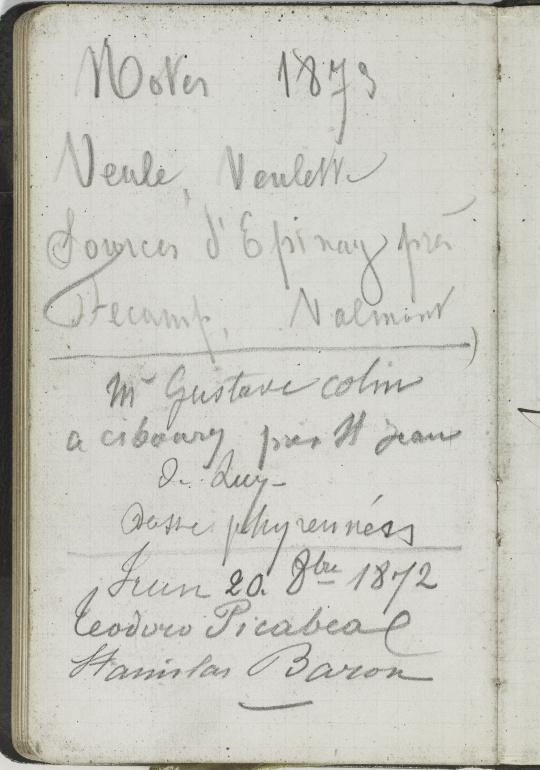 Notes 1873
Veule, Veulette
Sources d'Epinay près
Fecamp, Valmont
Mr Gustave colin
a cibourg pres St Jean
de Luz
Basse phyrennéss
Irun 20. 8bre 1872
Teodoro Picabea
Stanislas Baron